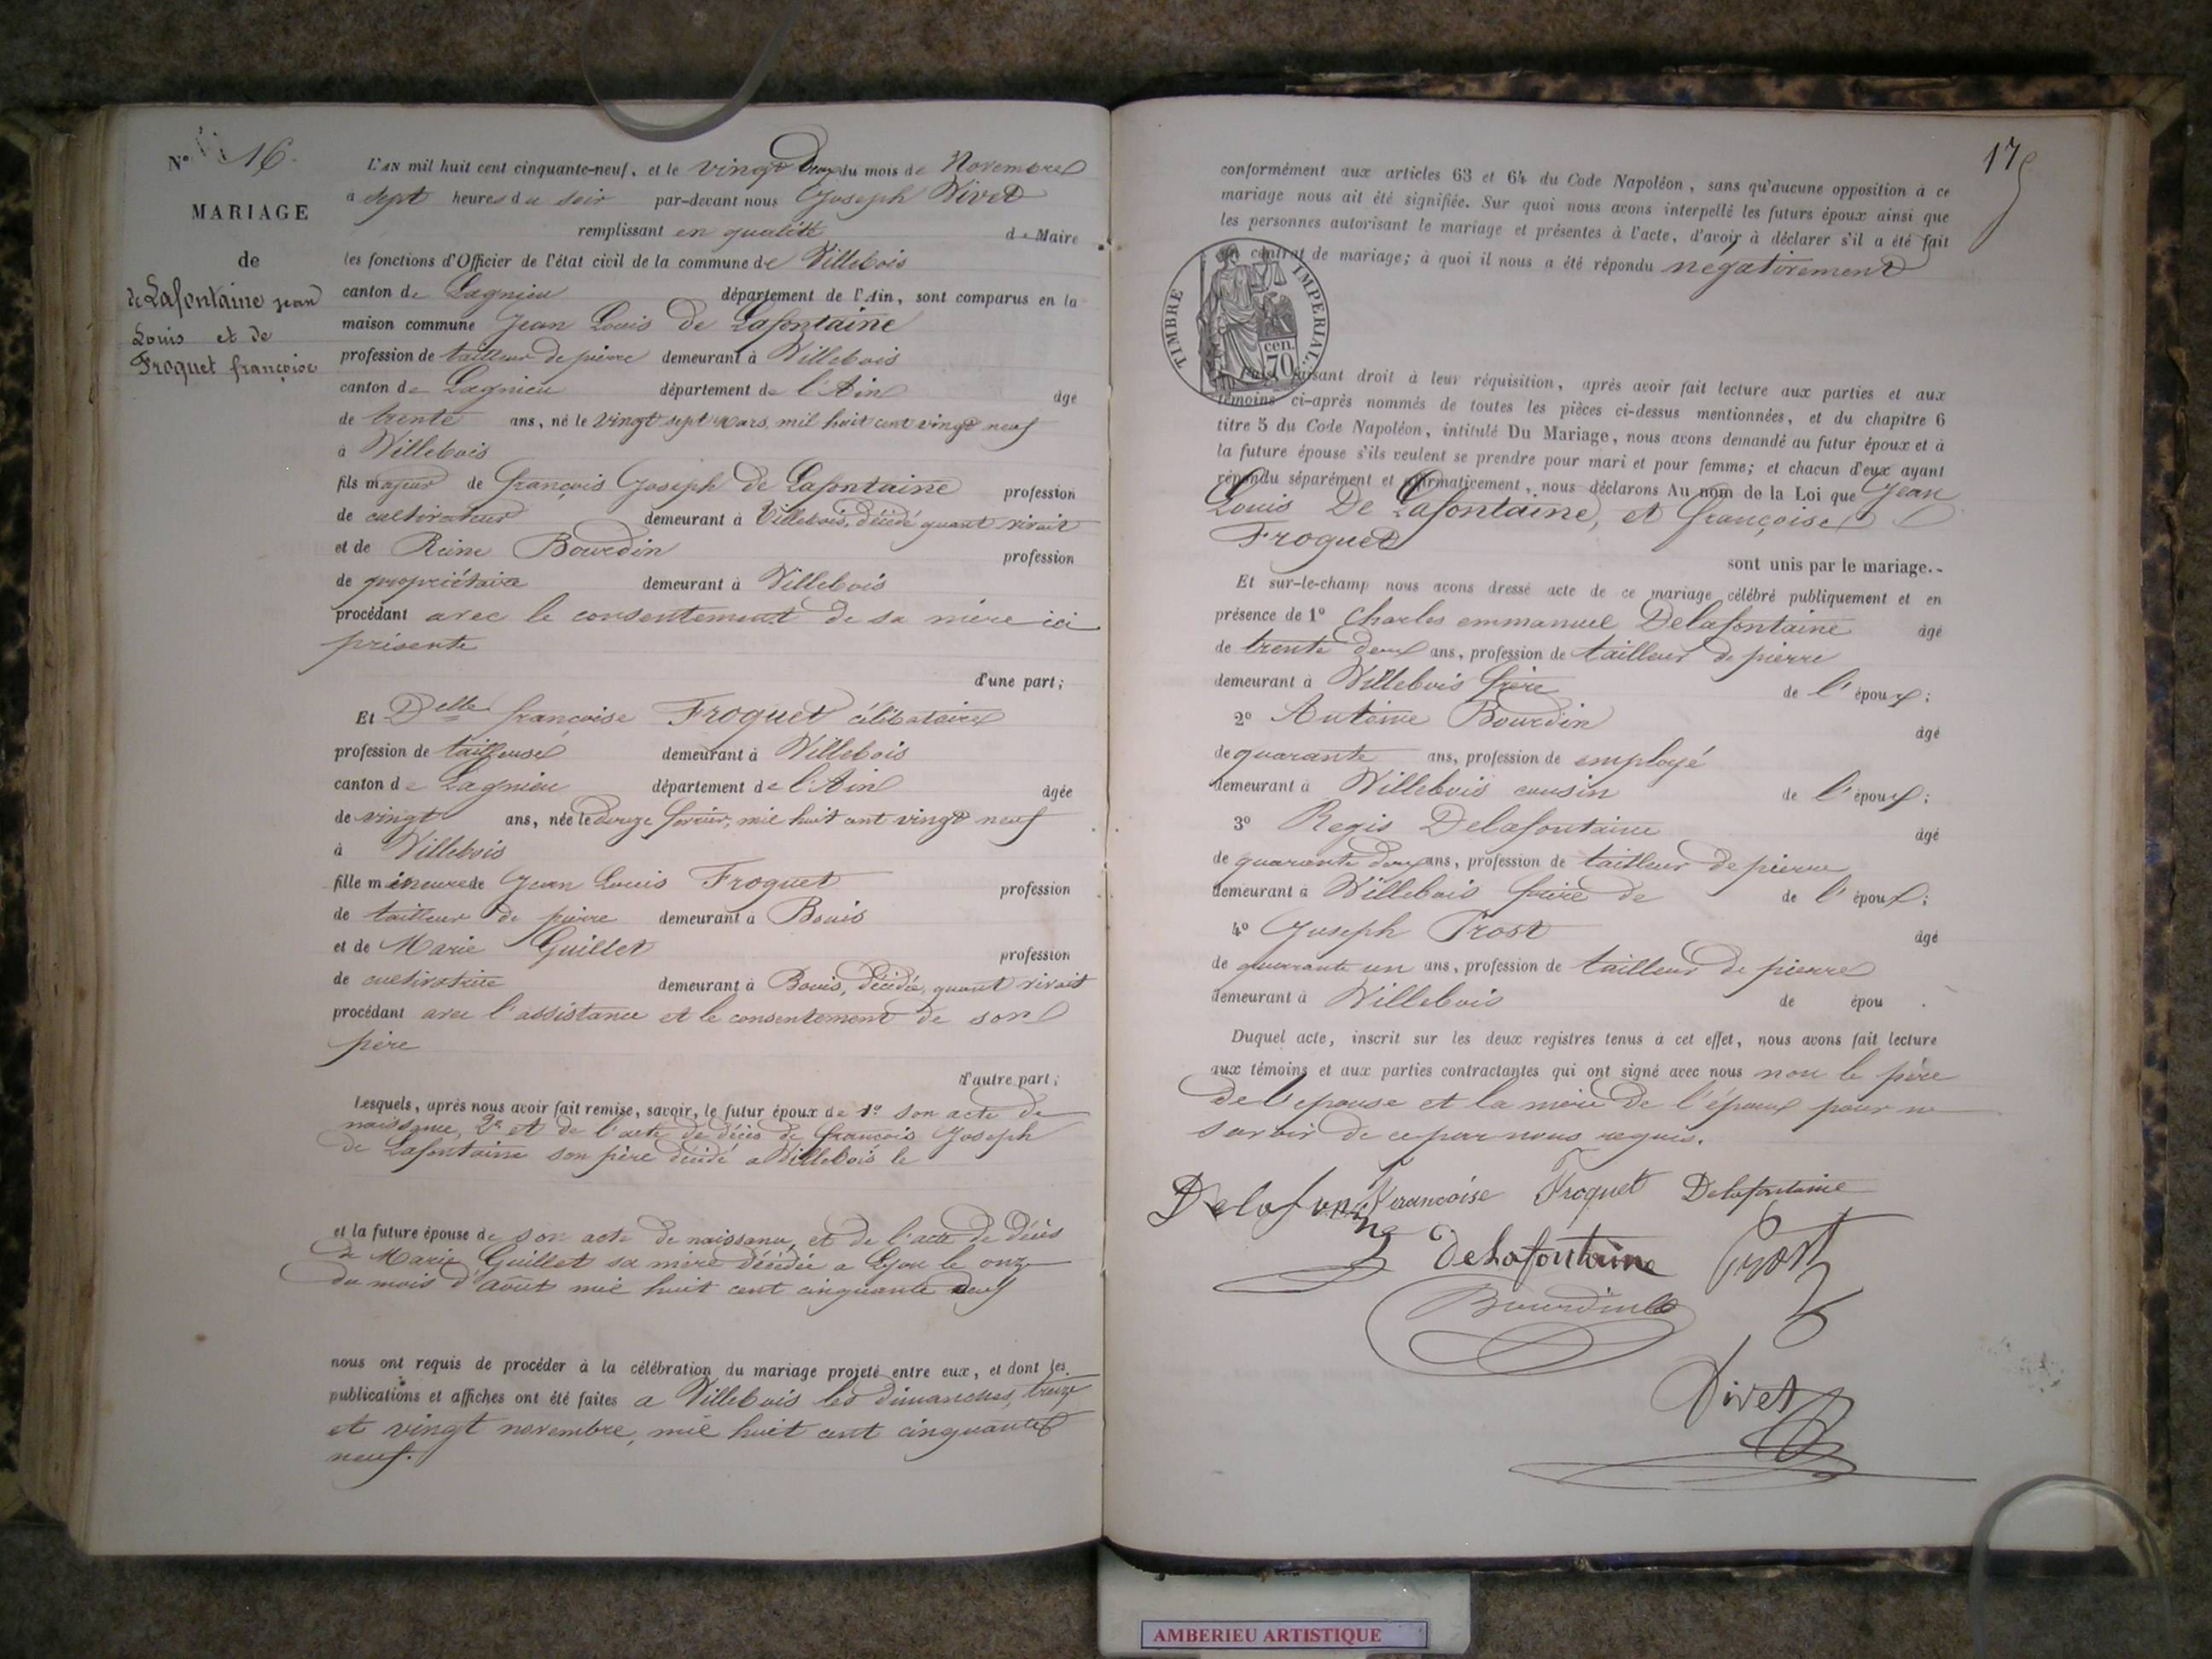 N° 16
MARIAGE
de
de Lafontaine jean
Louis et de
Froquet françoise
L'AN mil huit cent cinquante-neuf, et le vingt deux du mois de Novembre
à sept heures du soir par-devant nous Joseph Vivet
remplissant en qualité de Maire
les fonctions d'Officier de l'état civil de la commune de Villebois
canton de Lagnieu département de l'Ain, sont comparus en la
maison commune Jean Louis de Lafontaine
profession de tailleur de pierre demeurant à Villebois
canton de Lagnieu département de l'Ain âgé
de trente ans, né le vingt sept mars mil huit cent vingt neuf
à Villebois
fils majeur de françois Joseph de Lafontaine profession
de cultivateur demeurant à Villebois, décédé quant vivait
et de Reine Bourdin profession
de propriétaire demeurant à Villebois
procédant avec le consentement de sa mère ici
présente
d'une part;
Et Delle françoise Froquet célibataire
profession de tailleuse demeurant à Villebois
canton de Lagnieu département de l'Ain âgée
de vingt ans, née le douze février, mil huit cent vingt neuf
à Villebois
fille mineure de Jean Louis Froquet profession
de tailleur de pierre demeurant à Bouis
et de Marie Guillet profession
de cultivatrice demeurant à Bouis, décédée, quant vivait
procédant avec l'assistance et le consentement de son
père
d'autre part;
Lesquels, après nous avoir fait remise, savoir, le futur époux de 1° son acte de
naissance, 2° et de l'acte de décès de françois Joseph
de Lafontaine son père décédé a Villebois le
et la future épouse de son acte de naissance, et de l'acte de décès
de Marie Guillet sa mère décédée a Lyon le onze
du mois d'août mil huit cent cinquante neuf
nous ont requis de procéder à la célébration du mariage projeté entre eux, et dont les
publications et affiches ont été faites a Villebois les dimanches, treize
et vingt novembre, mil huit cent cinquante
neuf.
175
conformément aux articles 63 et 64 du Code Napoléon, sans qu'aucune opposition à ce
mariage nous ait été signifiée. Sur quoi nous avons interpellé les futurs époux ainsi que
les personnes autorisant le mariage et présentes à l'acte, d'avoir à déclarer s'il a été fait
contrat de mariage; à quoi il nous a été répondu negativement
TIMBRE IMPERIAL.
70 cen.
faisant droit à leur réquisition, après avoir fait lecture aux parties et aux
témoins ci-après nommés de toutes les pièces ci-dessus mentionnées, et du chapitre 6
titre 5 du Code Napoléon, intitulé Du Mariage, nous avons demandé au futur époux et à
la future épouse s'ils veulent se prendre pour mari et pour femme; et chacun d'eux ayant
répondu séparément et affirmativement, nous déclarons Au nom de la Loi que Jean
Louis De Lafontaine, et françoise
Froquet
sont unis par le mariage.-
Et sur-le-champ nous avons dressé acte de ce mariage célébré publiquement et en
présence de 1° Charles emmanuel Delafontaine âgé
de trente deux ans, profession de tailleur de pierre
demeurant à Villebois frère de l'époux;
2° Antoine Bourdin âgé
de quarante ans, profession de employé
demeurant à Villebois cousin de l'époux;
3° Regis Delafontaine âgé
de quarante deux ans, profession de tailleur de pierre
demeurant à Villebois frère de de l'époux;
4° Joseph Prost âgé
de quarante un ans, profession de tailleur de pierre
demeurant à Villebois de épou .
Duquel acte, inscrit sur les deux registres tenus à cet effet, nous avons fait lecture
aux témoins et aux parties contractantes qui ont signé avec nous non le père
de l'epouse et la mère de l'époux pour ne
savoir de ce par nous requis.
Delafontaine Francoise Froquet Delafontaine
DeLafontaine Prost
Bourdin
Vivet
AMBERIEU ARTISTIQUE